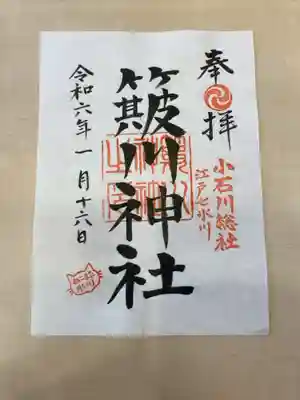 奉拝
小石川総社
江戸七氷川
簸川神社
令和六年一月十六日